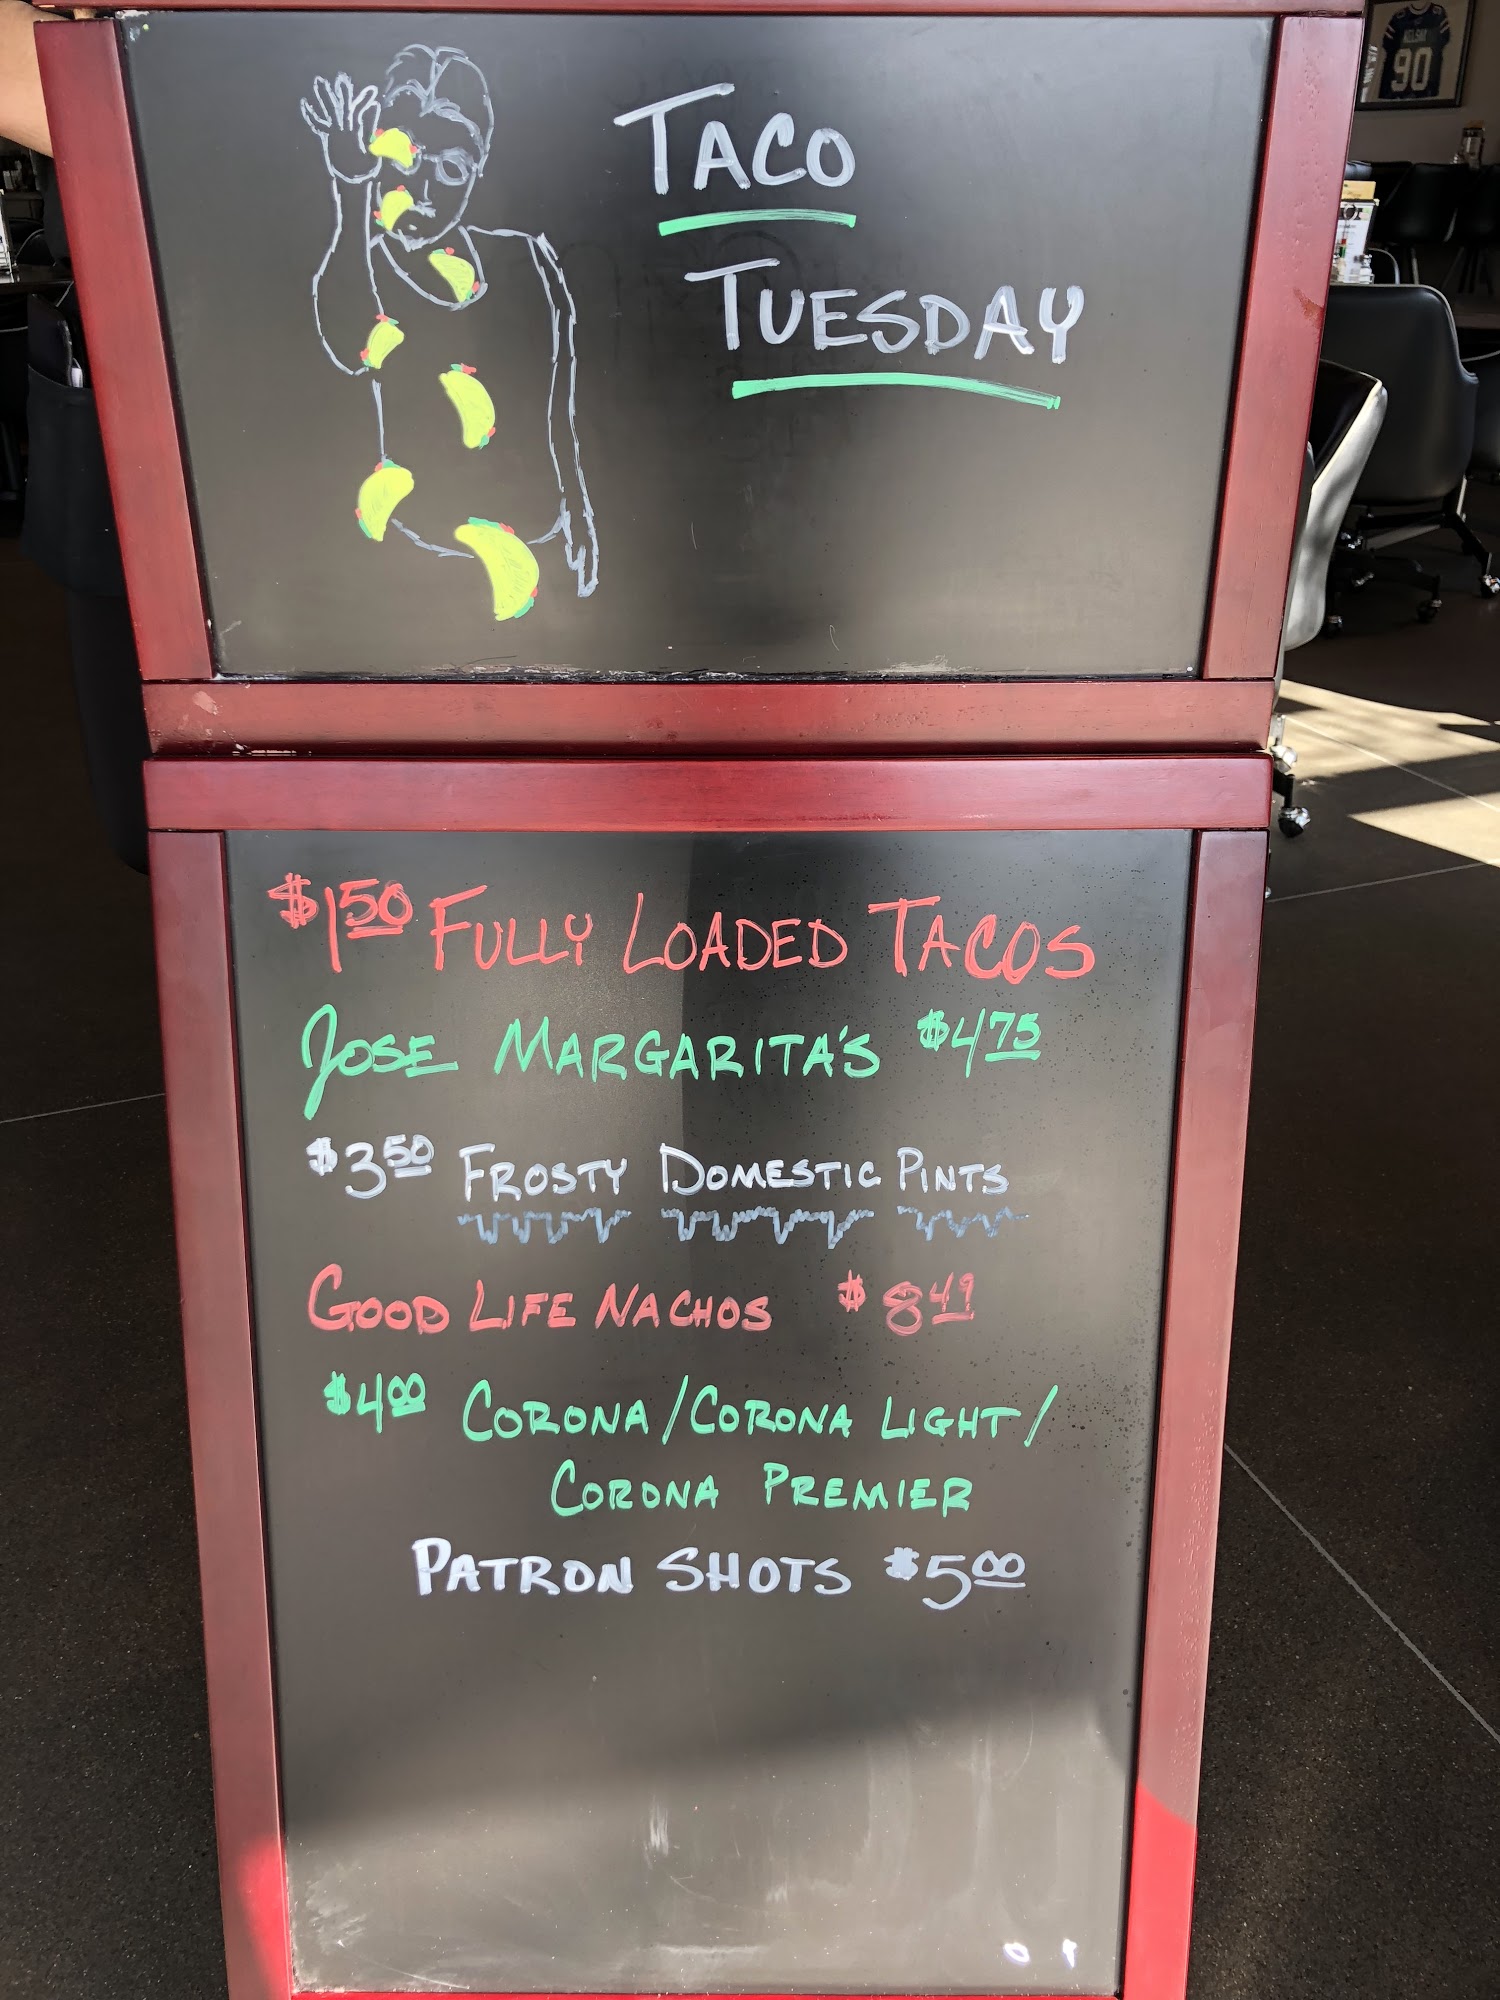 TACO
TUESDAY
$1.50 FULLY LOADED TACOS
JOSE MARGARITA'S $4.75
$3.50 FROSTY DOMESTIC PINTS
GOOD LIFE NACHOS $8.49
$4.00 CORONA/CORONA LIGHT/
CORONA PREMIER
PATRON SHOTS $5.00
90